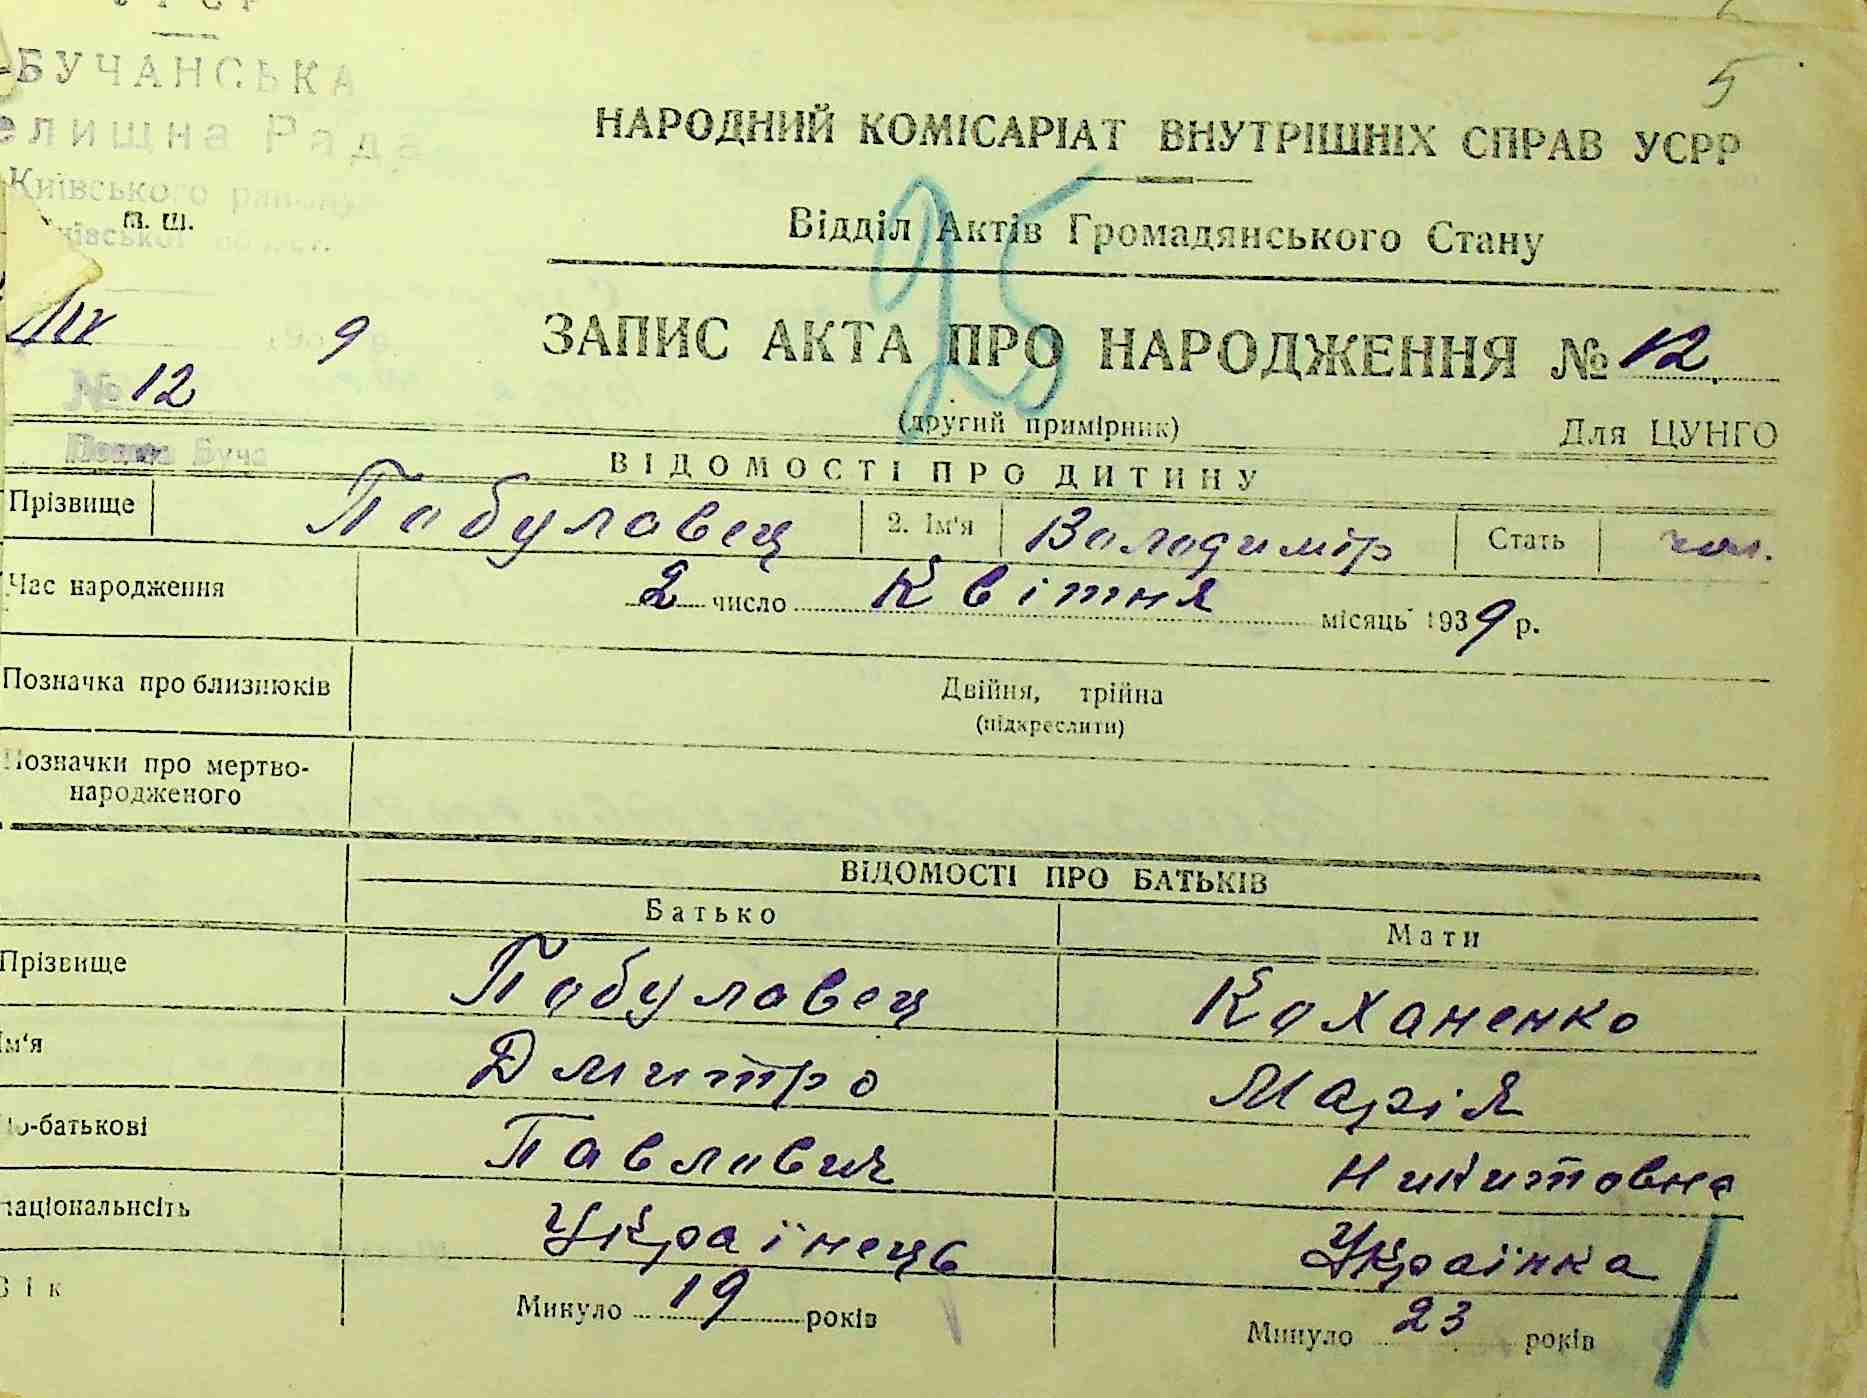 УРСР
БУЧАНСЬКА
елищна Рада
Київського району
ївської област.
п. ш.
5
НАРОДНИЙ КОМІСАРІАТ ВНУТРІШНІХ СПРАВ УСРР
25
Відділ Актів Громадянського Стану
9
ЗАПИС АКТА ПРО НАРОДЖЕННЯ № 12
№ 12
(другий примірник) Для ЦУНГО
Буча
ВІДОМОСТІ ПРО ДИТИНУ
Прізвище Побуловец 2. Ім'я Володимір Стать чол.
Час народження 2 число Квітня місяць 1939 р.
Позначка про близнюків Двійня, трійна
(підкреслити)
Позначки про мертво-
народженого
ВІДОМОСТІ ПРО БАТЬКІВ
Батько Мати
Прізвище Побуловец Коханенко
Ім'я Дмитро Марія
по-батькові Павлович Никитовна
національнсіть Українець Українка
Вік Минуло 19 років Минуло 23 років